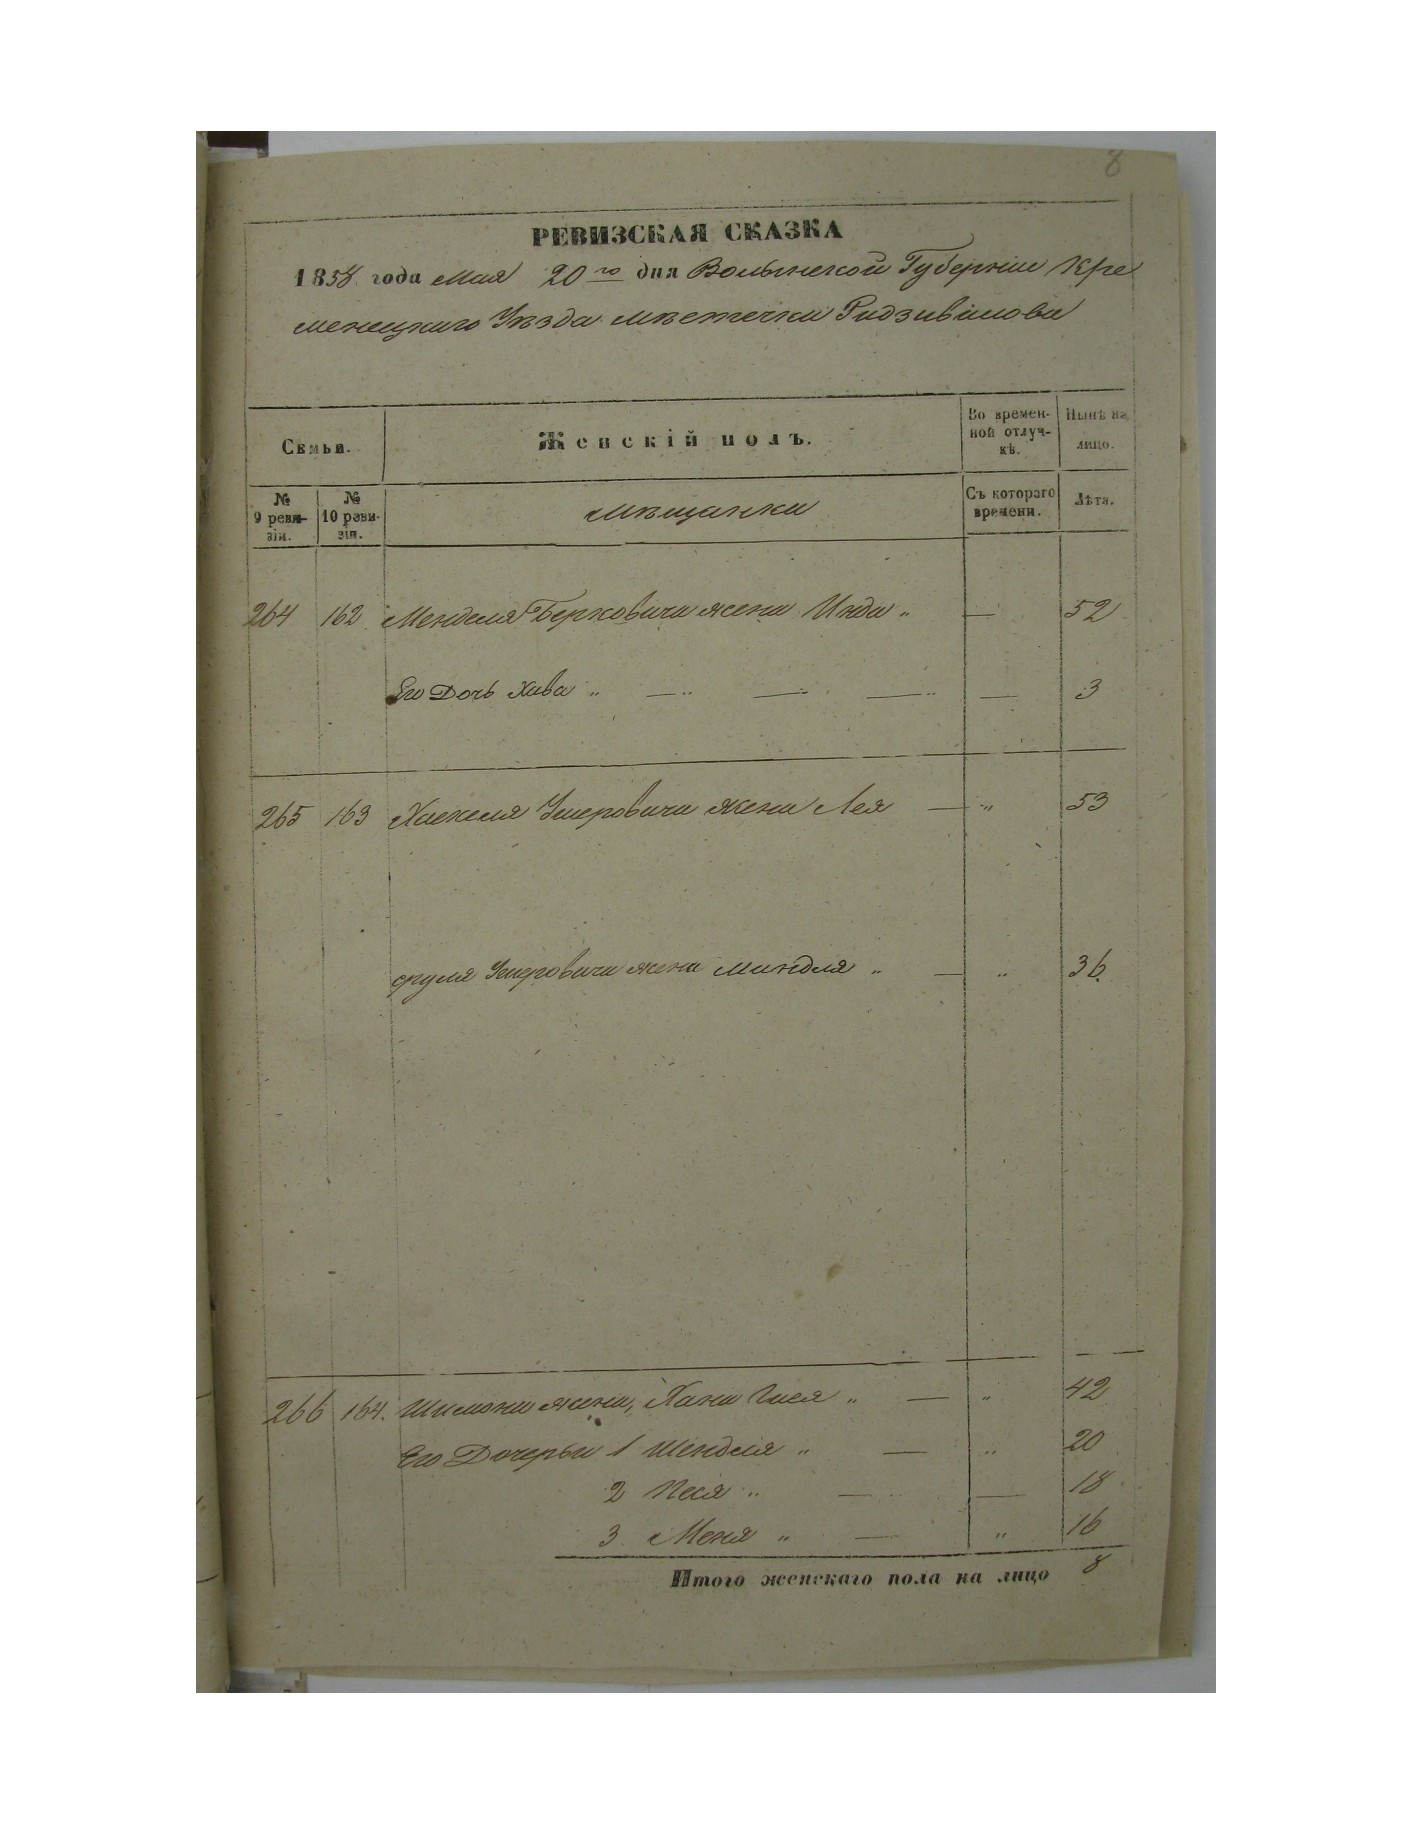 8
РЕВИЗСКАЯ СКАЗКА
1858 года Мая 20го дня Волынской Губерніи Кре
менецкаго Уѣзда мѣстечка Радзивилова
Семьи.
Женскій полъ.
Во времен-
ной отлуч-
кѣ.
Нынѣ на
лицо.
№
9 реви-
зіи.
№
10 реви-
зіи.
мѣщанки
Съ котораго
времени.
Лѣта.
264 162 Менделя Берковича жена Инда „ — 52
Его Дочь Хава „ — „ — — „ — 3
265 163 Хаскеля Умеровича жена Лея — „ 53
Сруля Умеровича жена Миндля „ — „ 36.
266 164. Шимона жена, Хана Гися „ — „ 42
Его Дочерьи 1 Шендля „ — „ 20
2 Песя „ — — 18
3 Меня „ — „ 16
Итого женскаго пола на лицо 8